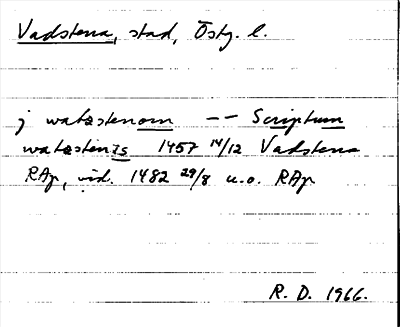 Vadstena, stad, Östg. l.
j watzstenom -- Scriptum
watzstenis 1457 14/12 Vadstena
RAp, vid. 1482 29/8 u.o. RAp
R. D. 1966.